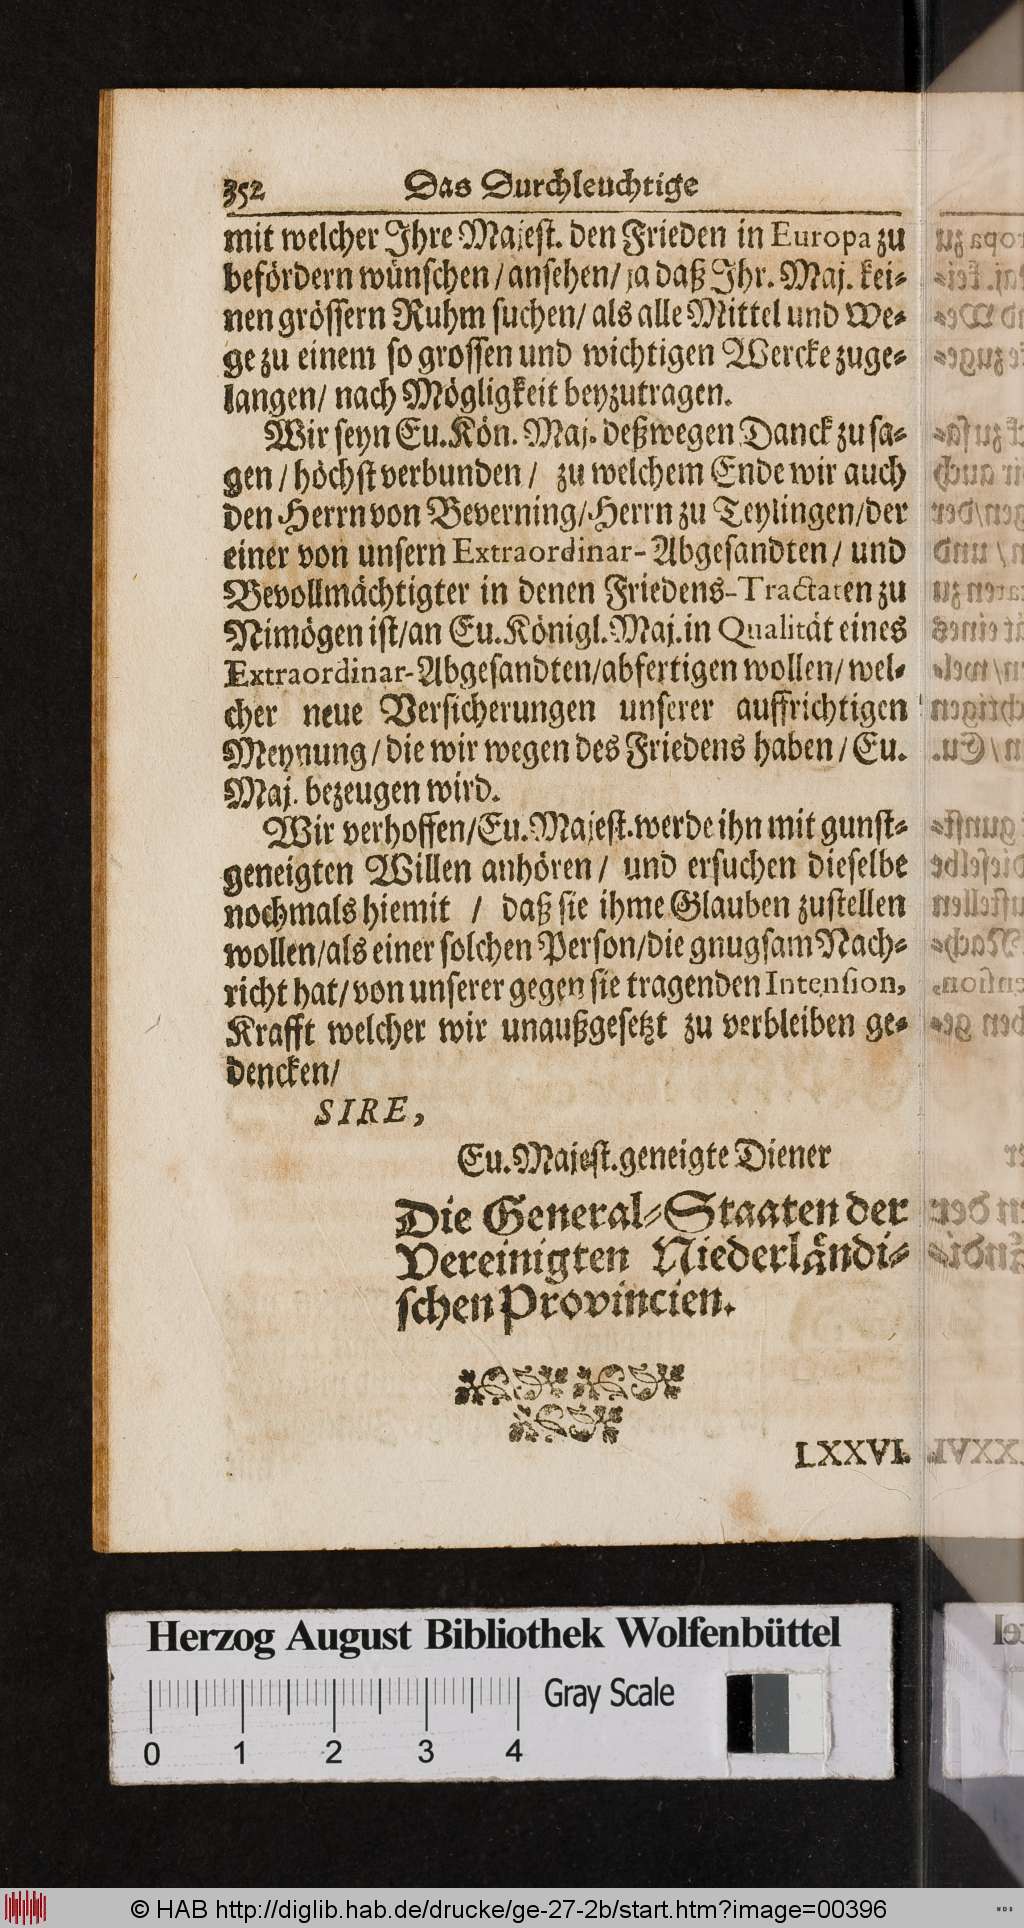 352 Das Durchleuchtige
mit welcher Ihre Majest. den Frieden in Europa zu
befördern wünschen / ansehen / ja daß Ihr. Maj. kei-
nen grössern Ruhm suchen / als alle Mittel und We-
ge zu einem so grossen und wichtigen Wercke zuge-
langen / nach Mögligkeit beyzutragen.
Wir seyn Eu. Kön. Maj. deßwegen Danck zu sa-
gen / höchst verbunden / zu welchem Ende wir auch
den Herrn von Beverning / Herrn zu Teylingen / der
einer von unsern Extraordinar-Abgesandten / und
Bevollmächtigter in denen Friedens-Tractaten zu
Nimögen ist / an Eu. Königl. Maj. in Qualität eines
Extraordinar-Abgesandten / abfertigen wollen / wel-
cher neue Versicherungen unserer auffrichtigen
Meynung / die wir wegen des Friedens haben / Eu.
Maj. bezeugen wird.
Wir verhoffen / Eu. Majest. werde ihn mit gunst-
geneigten Willen anhören / und ersuchen dieselbe
nochmals hiemit / daß sie ihme Glauben zustellen
wollen / als einer solchen Person / die gnugsam Nach-
richt hat / von unserer gegen sie tragenden Intension,
Krafft welcher wir unaußgesetzt zu verbleiben ge-
dencken /
SIRE,
Eu. Majest. geneigte Diener
Die General-Staaten der
Vereinigten Niederländi-
schen Provincien.
LXXVI.
Herzog August Bibliothek Wolfenbüttel
Gray Scale
0 1 2 3 4
© HAB http://diglib.hab.de/drucke/ge-27-2b/start.htm?image=00396